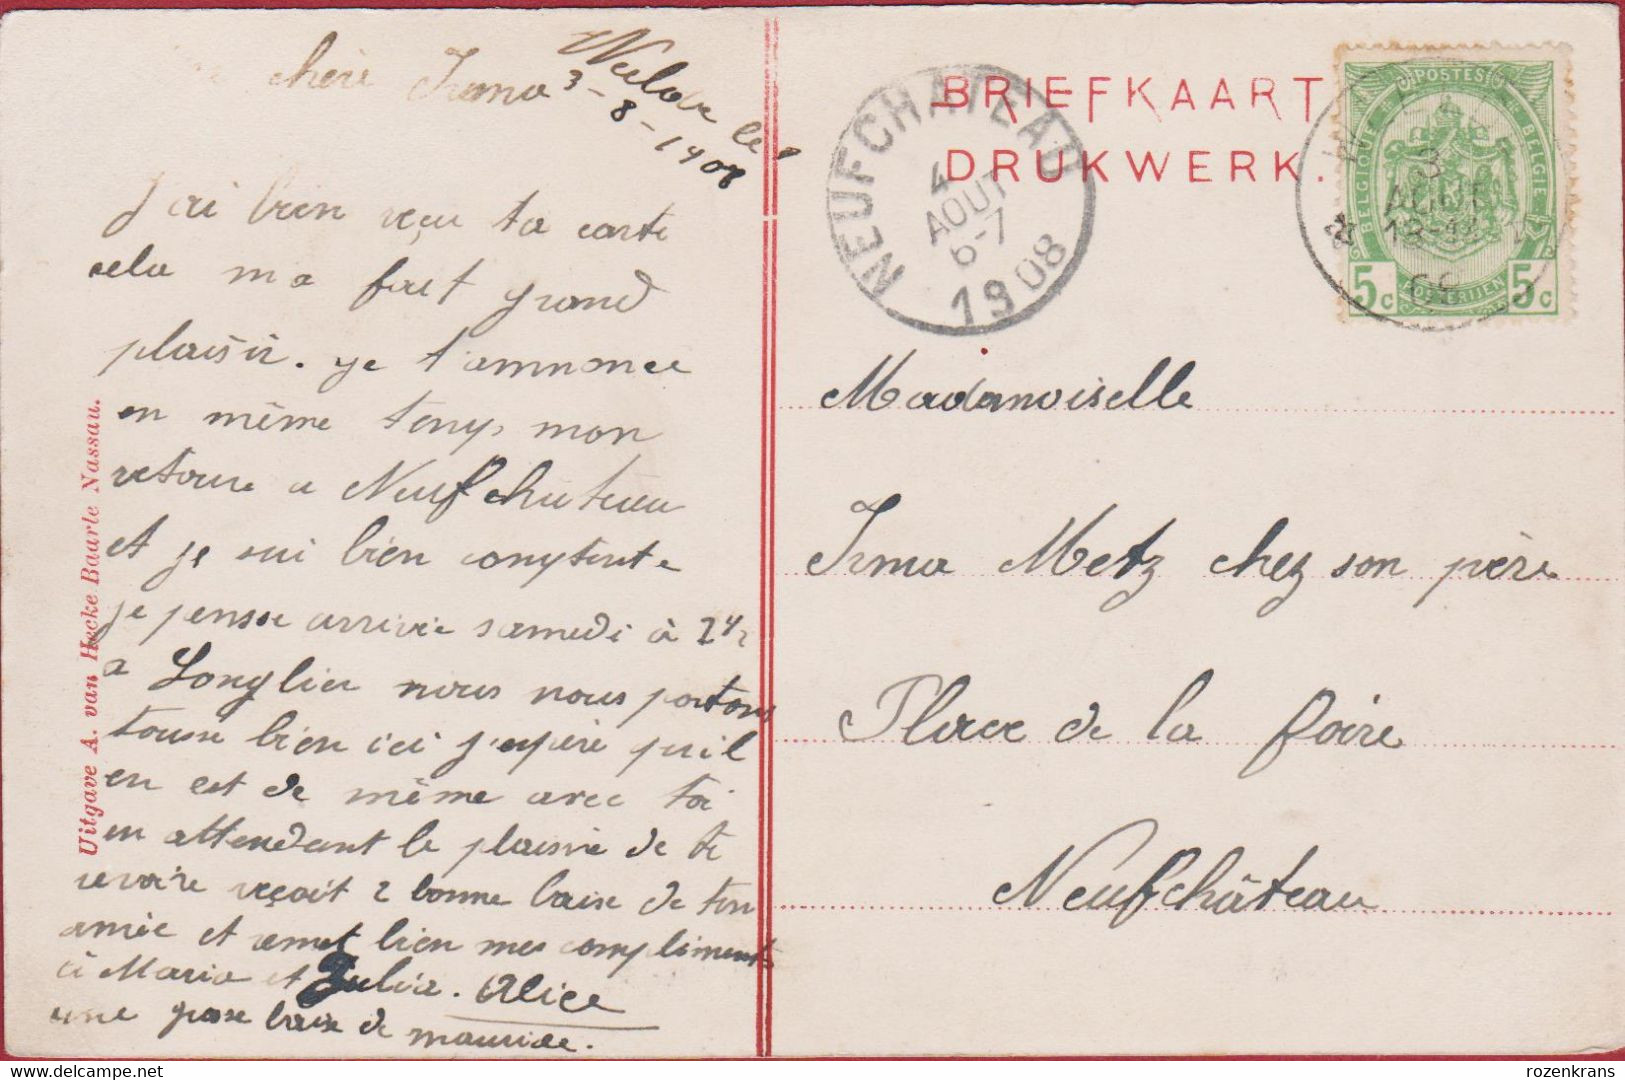 chère Irma
Welde le
3-8-1908
j'ai bien reçu ta carte
cela ma fait grand
plaisir. je t'annonce
en même temp, mon
retoure a Neufchateau
et je sui bien contente
je pensse arrivée samedi à 2 1/2
a Longlier nous nous portons
tousse bien ici j'espère quil
en est de même avec toi
en attendant le plaisire de te
revoire reçoit 2 bonne baise de ton
amie et remet bien mes compliments
à Maria et Julia. Alice
une grosse baise de maurice.
Uitgave A. van Hecke Baarle Nassau.
BRIEFKAART
DRUKWERK.
NEUFCHATEAU
4
AOUT
6-7
1908
POSTES
BELGIQUE
BELGIE
POSTERIJEN
5c
5c
3
AOUT
08
Mademoiselle
Irma Metz chez son père
Place de la foire
Neufchâteau
rozenkrans